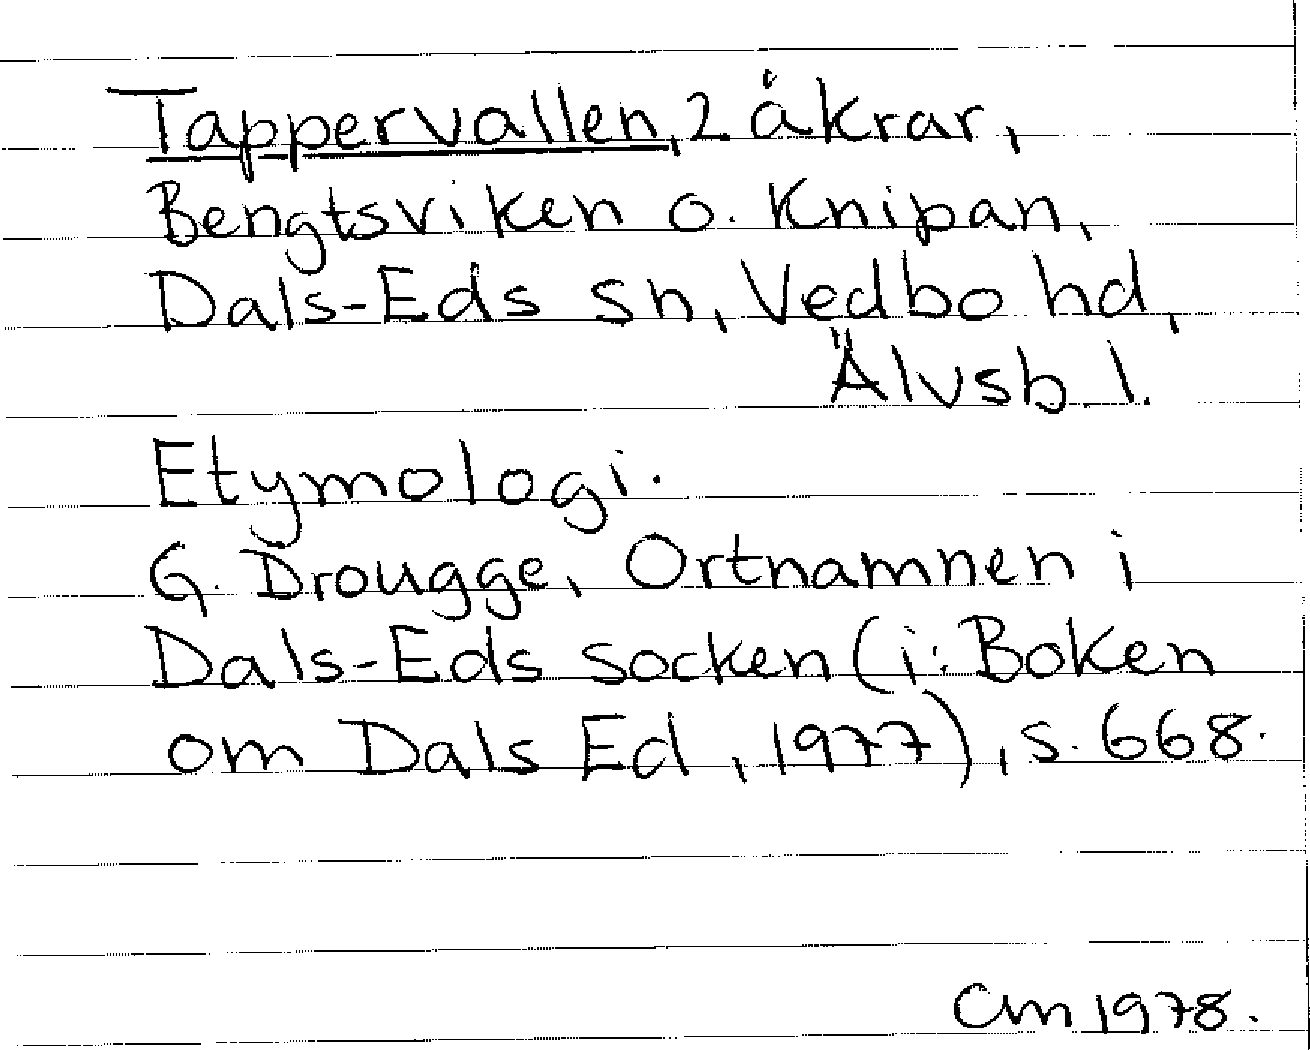 Tappervallen, 2 åkrar,
Bengtsviken o. Knipan,
Dals-Eds sn, Vedbo hd,
Älvsb. l.
Etymologi.
G. Drougge, Ortnamnen i
Dals-Eds socken (i: Boken
om Dals Ed, 1977), s. 668.
Cm 1978.